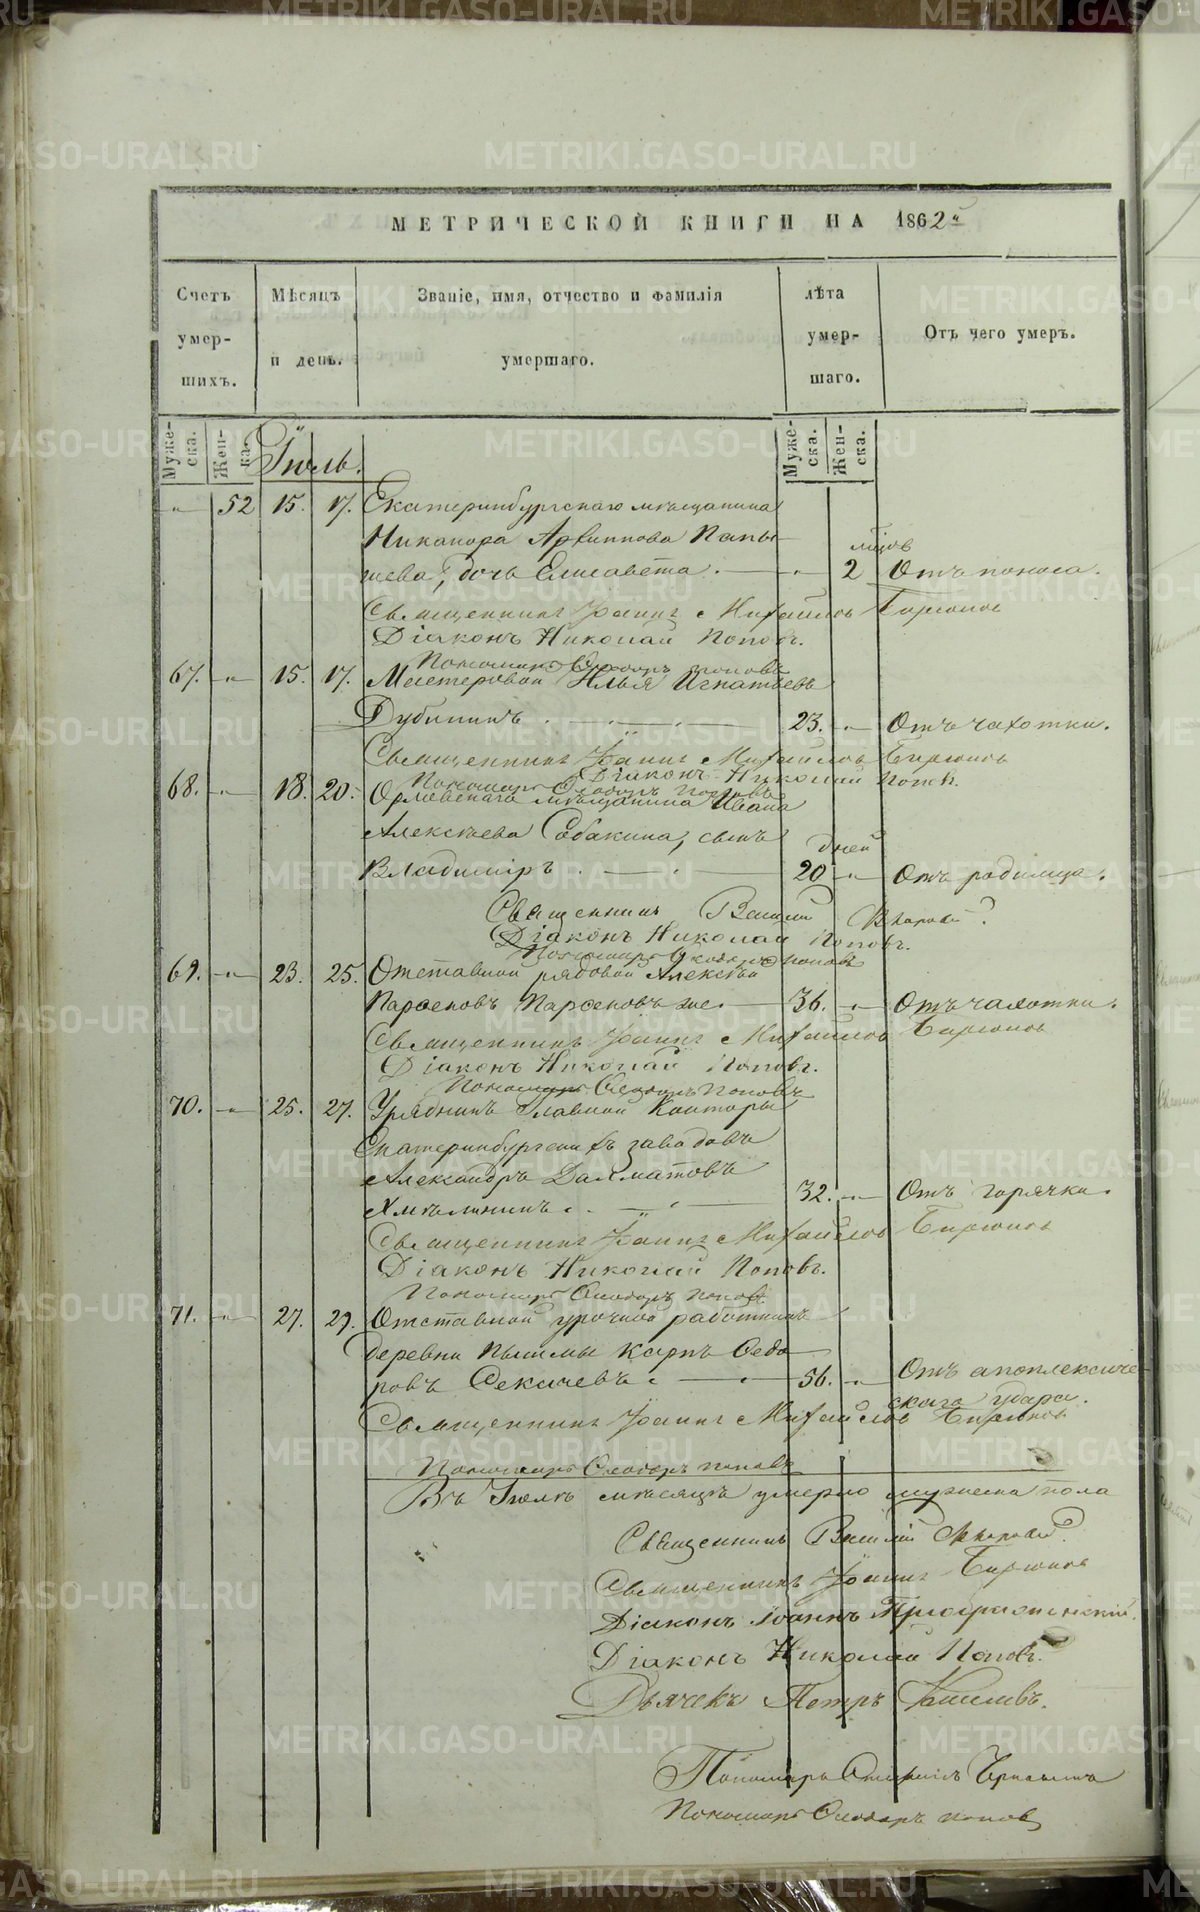 МЕТРИЧЕСКОЙ КНИГИ НА 1862й
Счетъ умер-шихъ.
Мѣсяцъ и день.
Званіе, имя, отчество и фамилія умершаго.
лѣта умер-шаго.
Отъ чего умеръ.
Муже-ска.
Жен-ка.
Муже-ска.
Жен-ска.
Іюль.
52 15. 17. Екатеринбургскаго мѣщанина
Никанора Архиппова Папы-
шева, дочь Елисавета. 2 мѣсяцовъ Отъ поноса.
Священникъ Іоаннъ Михайловъ Бирюковъ
Діаконъ Николай Поповъ.
Пономарь Ѳеодоръ Поповъ
67. 15. 17. Мастеровой Илья Игнатьевъ
Дубининъ. 23. Отъ чахотки.
Священникъ Іоаннъ Михайловъ Бирюковъ
Діаконъ Николай Поповъ.
Пономарь Ѳеодоръ Поповъ
68. 18. 20. Орловскаго мѣщанина Ивана
Алексѣева Собакина, сынъ дней
Владиміръ 20 Отъ родимца.
Священникъ Василій
Діаконъ Николай Поповъ.
Пономарь Ѳеодоръ Поповъ
69. 23. 25. Отставной рядовой Алексѣй
Парѳеновъ Парѳеновъ же. 36. Отъ чахотки.
Священникъ Іоаннъ Михайловъ Бирюковъ
Діаконъ Николай Поповъ.
Пономарь Ѳеодоръ Поповъ
70. 25. 27. Урядникъ Главной Конторы
Екатеринбургскихъ заводовъ
Александръ Далматовъ
Хмѣлининъ. 32. Отъ горячки.
Священникъ Іоаннъ Михайловъ Бирюковъ
Діаконъ Николай Поповъ.
Пономарь Ѳеодоръ Поповъ
71. 27. 29. Отставной урочной работникъ
деревни Пышмы Карпъ Ѳедо-
ровъ Секачевъ. 56. Отъ апоплексиче-
скаго удара.
Священникъ Іоаннъ Михайловъ Бирюковъ
Пономарь Ѳеодоръ Поповъ
Въ Іюлѣ мѣсяцѣ умерло мужеска пола
Священникъ Василій
Священникъ Іоаннъ Бирюковъ
Діаконъ Іоаннъ Преображенскій.
Діаконъ Николай Поповъ.
Дьячекъ Петръ
Пономарь
Пономарь Ѳеодоръ Поповъ
METRIKI.GASO-URAL.RU